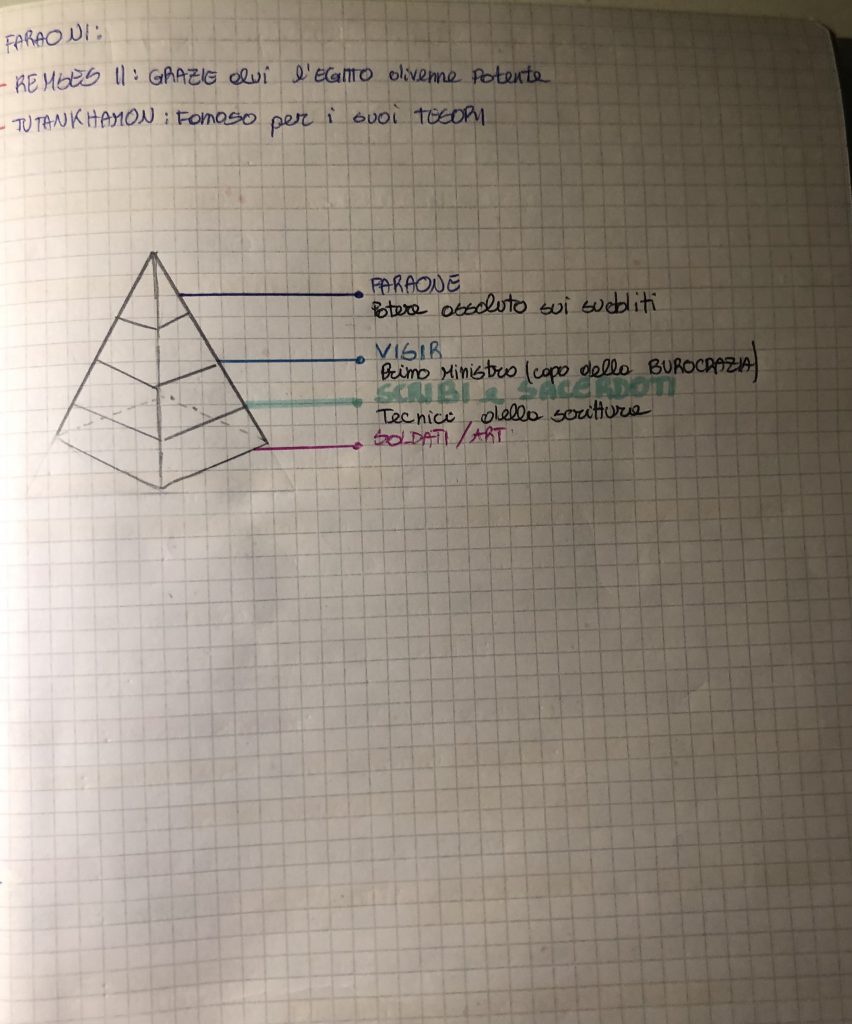 FARAONI:
- REMSES II: GRAZIE a lui l'EGITTO divenne potente
- TUTANKHAMON: Famoso per i suoi TESORI
FARAONE
Potere assoluto sui sudditi
VISIR
Primo Ministro (capo della BUROCRAZIA)
SCRIBI e SACERDOTI
Tecnici della scrittura
SOLDATI/ART